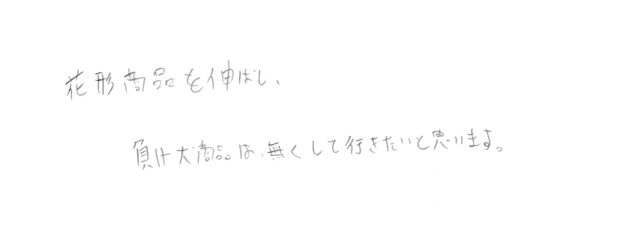 花形商品を伸ばし、
負け犬商品は、無くして行きたいと思います。